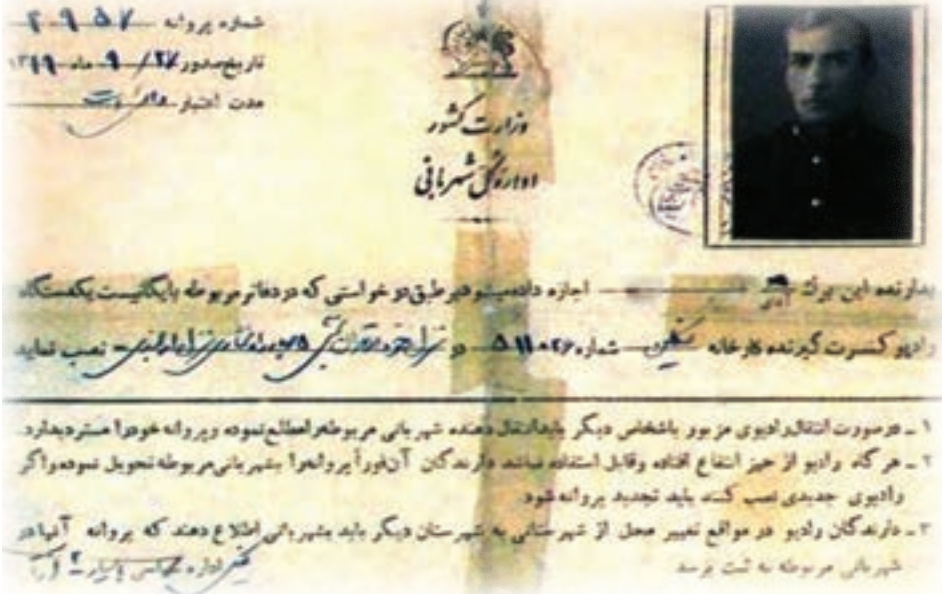 شماره پروانه ۲۹۵۷
تاریخ صدور ۲۷/ ۹ ماه ۱۳۱۹
مدت اعتبار
وزارت کشور
اداره کل شهربانی
بدارنده این برگ آقای اجازه داده میشود برطبق درخواستی که در دفاتر مربوطه بایگانیست یکدستگاه
رادیو کنسرت گیرنده کارخانه شماره ۵۱۱۰۲۶ در نصب نماید
۱ ـ درصورت انتقال رادیوی مزبور باشخاص دیگر باید انتقال دهنده شهربانی مربوطه را مطلع نموده و پروانه خود را مسترد بدارد.
۲ ـ هرگاه رادیو از حیز انتفاع افتاده وقابل استفاده نباشد دارندگان آن فوراً پروانه را بشهربانی مربوطه تحویل نموده واگر
رادیوی جدیدی نصب کنند باید تجدید پروانه شود.
۳ ـ دارندگان رادیو در مواقع تغییر محل از شهرستانی به شهرستان دیگر باید بشهربانی اطلاع دهند که پروانه آنها در
شهربانی مربوطه به ثبت برسد
اداره